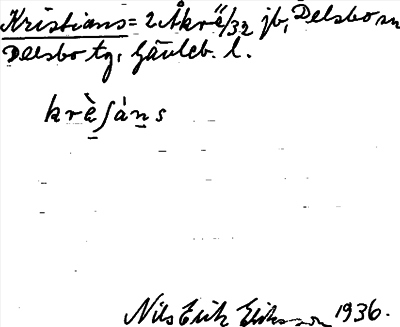 Kristians = 2 Åkre 4/32 jb, Delsbo sn
Delsbo tg, Gävleb. l.
krèʃáns
Nils Erik Eriksson 1936.